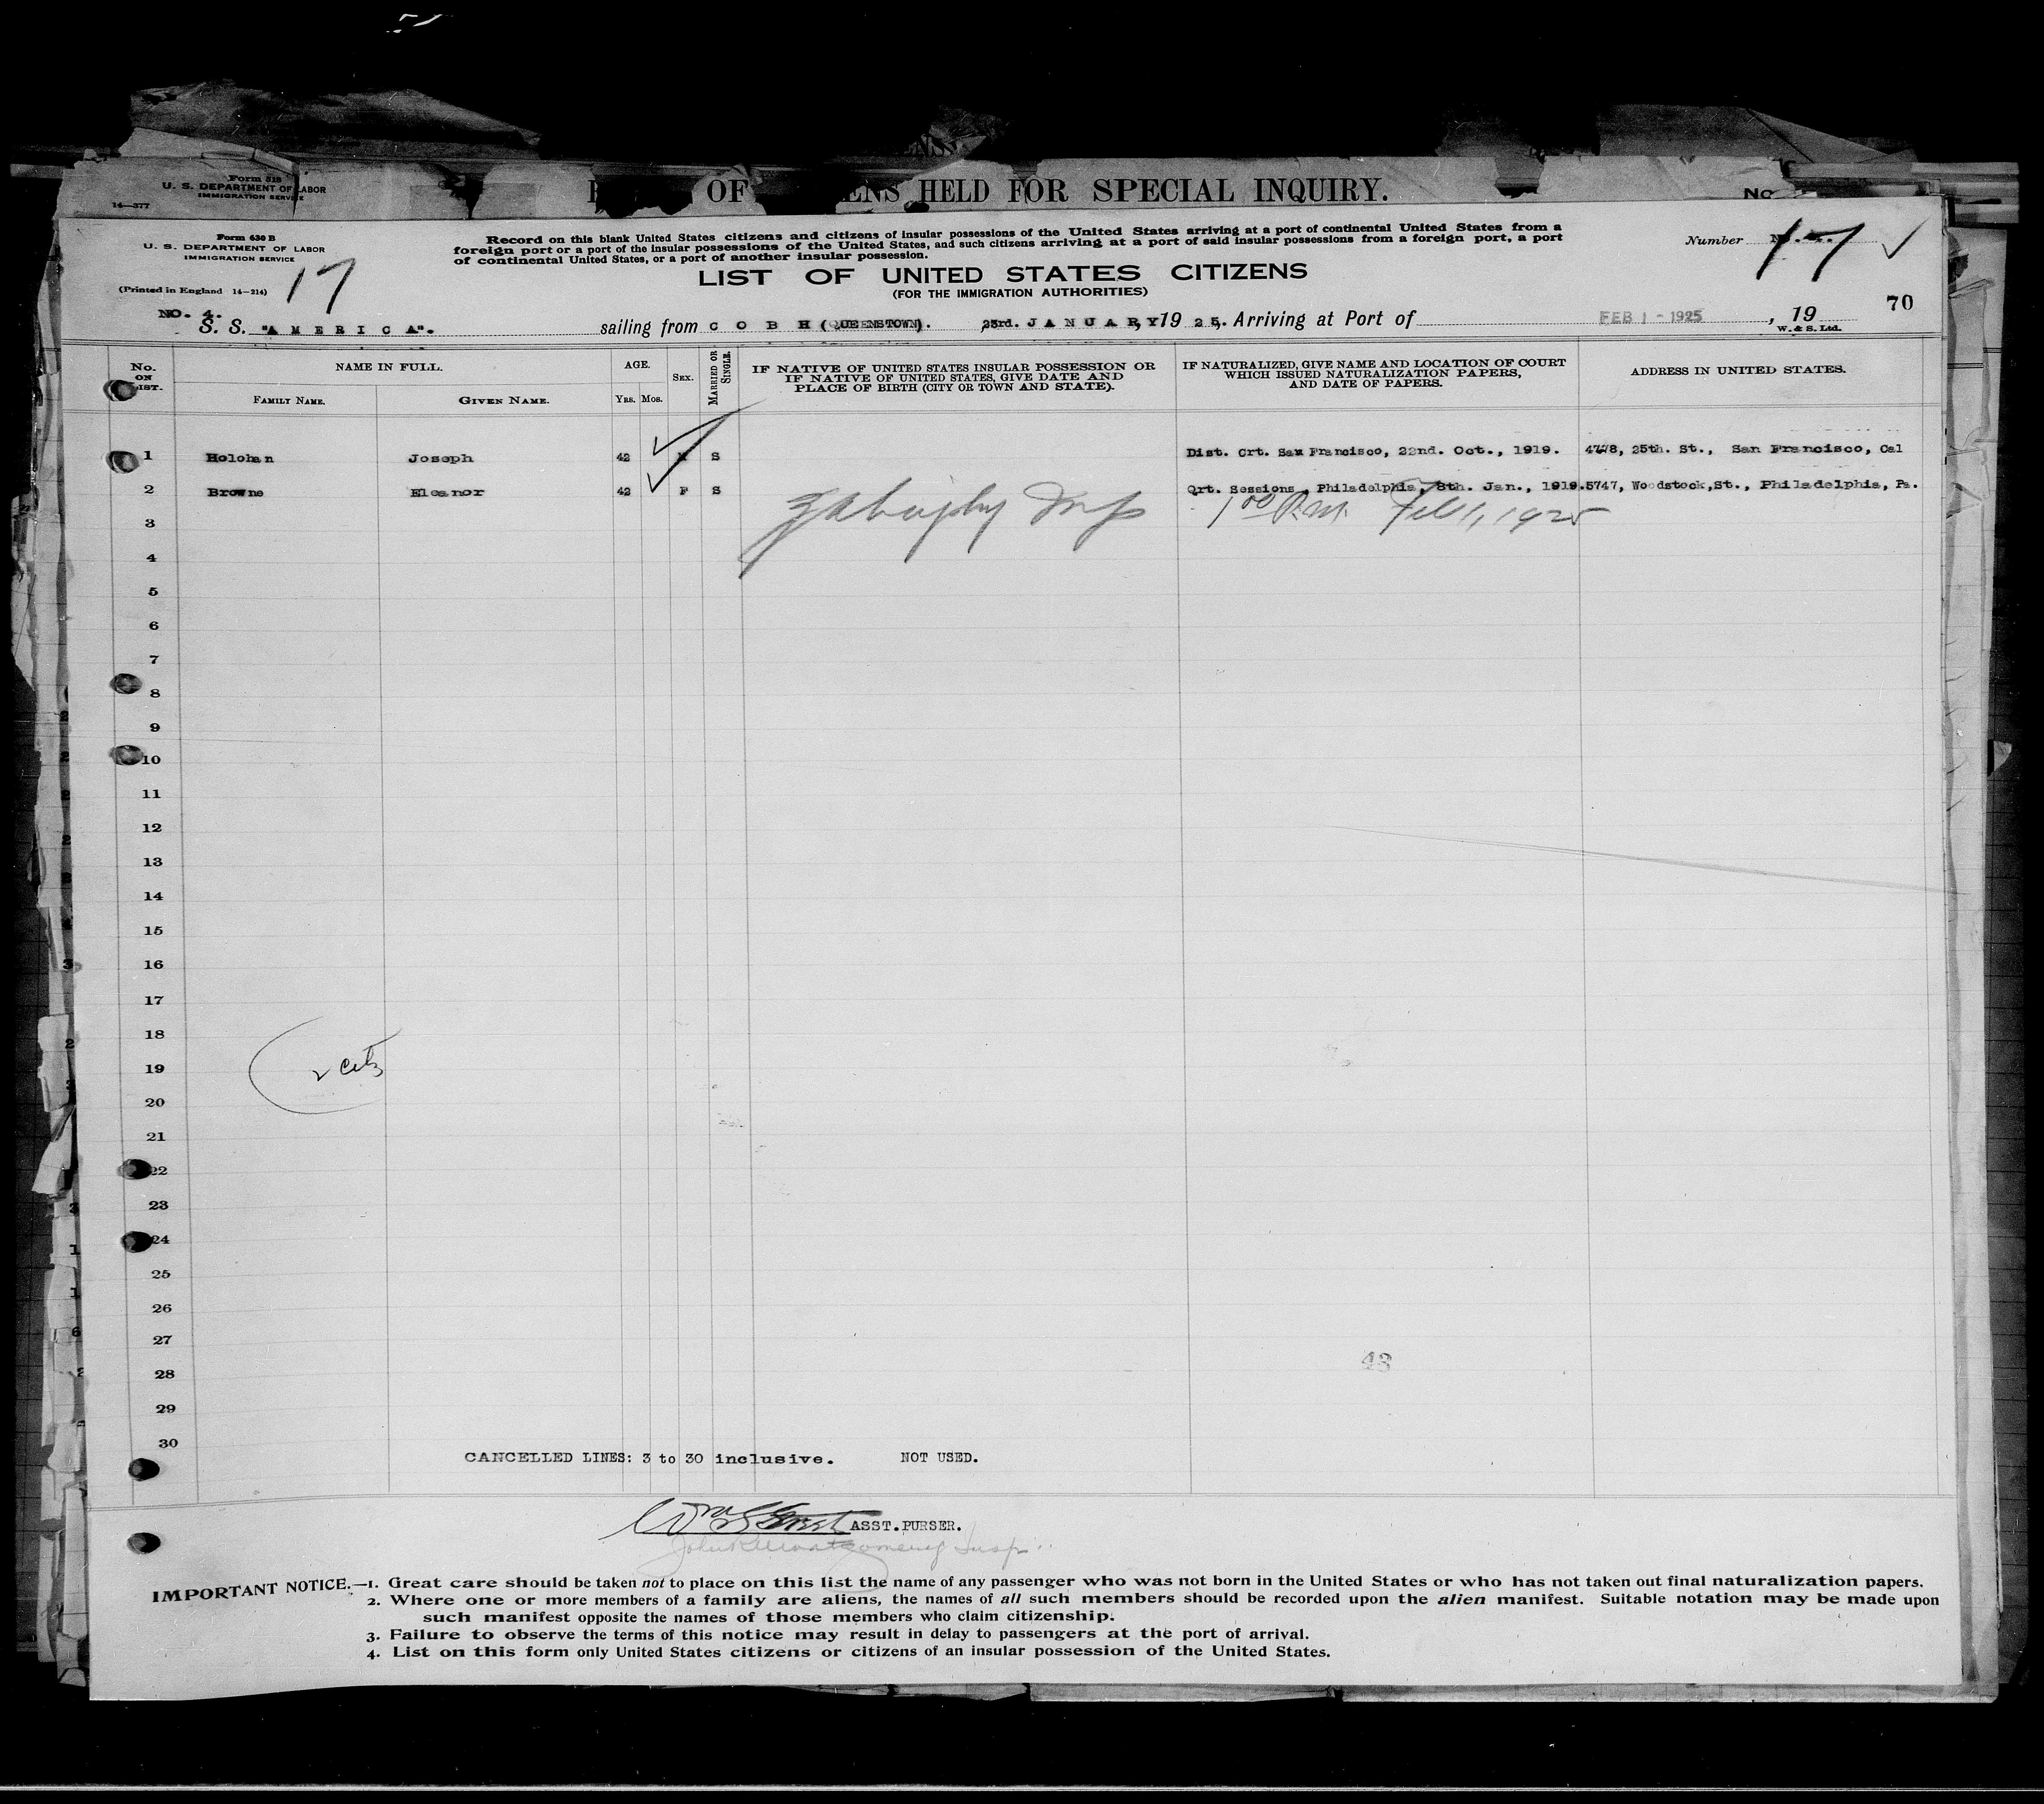 Form 518
U. S. DEPARTMENT OF LABOR
IMMIGRATION SERVICE
14—377
OF ENS HELD FOR SPECIAL INQUIRY.
No
Form 630 B
U. S. DEPARTMENT OF LABOR
IMMIGRATION SERVICE
(Printed in England 14—214)
17
Record on this blank United States citizens and citizens of insular possessions of the United States arriving at a port of continental United States from a
foreign port or a port of the insular possessions of the United States, and such citizens arriving at a port of said insular possessions from a foreign port, a port
of continental United States, or a port of another insular possession.
Number 17
LIST OF UNITED STATES CITIZENS
(FOR THE IMMIGRATION AUTHORITIES)
70
NO. 4.
S. S. "AMERICA". sailing from COBH (QUEENSTOWN). 23rd. JANUARY, 1925. Arriving at Port of FEB 1 - 1925, 19
W. & S. Ltd.
No. ON LIST. NAME IN FULL. AGE. SEX. MARRIED OR SINGLE. IF NATIVE OF UNITED STATES INSULAR POSSESSION OR IF NATIVE OF UNITED STATES, GIVE DATE AND PLACE OF BIRTH (CITY OR TOWN AND STATE). IF NATURALIZED, GIVE NAME AND LOCATION OF COURT WHICH ISSUED NATURALIZATION PAPERS, AND DATE OF PAPERS. ADDRESS IN UNITED STATES.
FAMILY NAME. GIVEN NAME. YRS. MOS.
1 Holohan Joseph 42 M S Dist. Crt. San Francisco, 22nd. Oct., 1919. 4778, 25th. St., San Francisco, Cal
2 Browne Eleanor 42 F S Qrt. Sessions, Philadelphia, 8th. Jan., 1919. 5747, Woodstock, St., Philadelphia, Pa.
3 1 00 P.M. Feb 1, 1925
4
5
6
7
8
9
10
11
12
13
14
15
16
17
18
19 2 Citz
20
21
22
23
24
25
26
27
28 43
29
30
CANCELLED LINES: 3 to 30 inclusive. NOT USED.
ASST. PURSER.
John R Montgomery Insp.
IMPORTANT NOTICE.—1. Great care should be taken not to place on this list the name of any passenger who was not born in the United States or who has not taken out final naturalization papers.
2. Where one or more members of a family are aliens, the names of all such members should be recorded upon the alien manifest. Suitable notation may be made upon
such manifest opposite the names of those members who claim citizenship.
3. Failure to observe the terms of this notice may result in delay to passengers at the port of arrival.
4. List on this form only United States citizens or citizens of an insular possession of the United States.